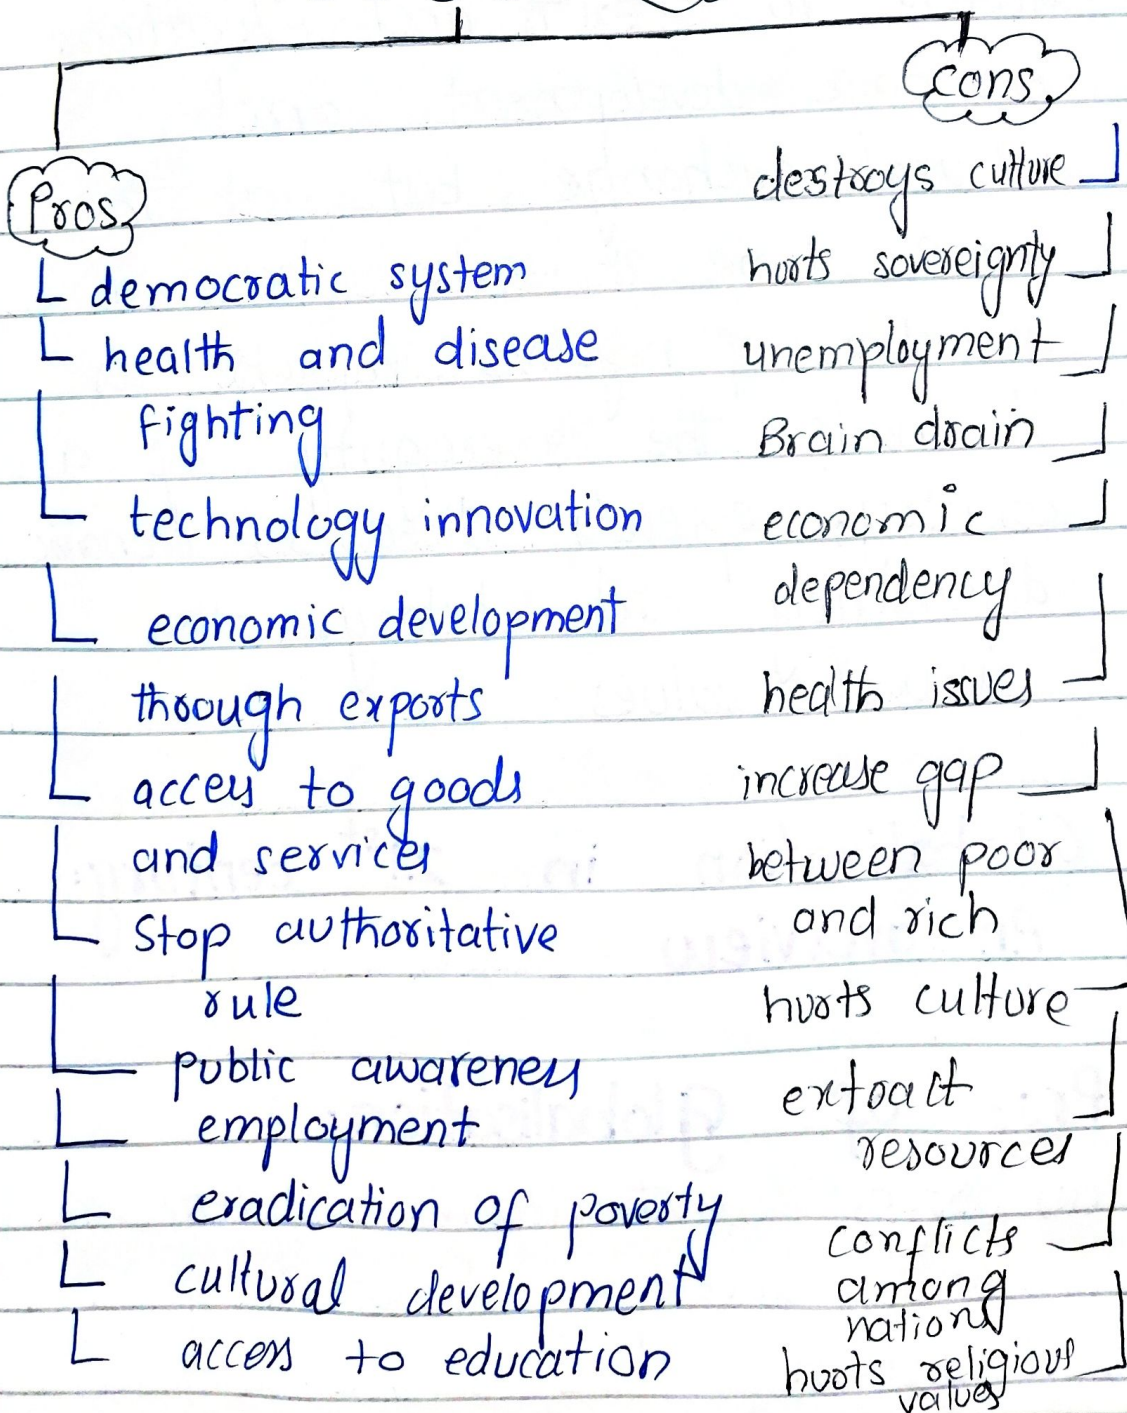 Pros
democratic system
health and disease
fighting
technology innovation
economic development
through exports
access to goods
and services
Stop authoritative
rule
public awareness
employment
eradication of poverty
cultural development
access to education
Cons
destroys culture
hurts sovereignty
unemployment
Brain drain
economic
dependency
health issues
increase gap
between poor
and rich
hurts culture
extract
resources
conflicts
among
nations
hurts religious
values